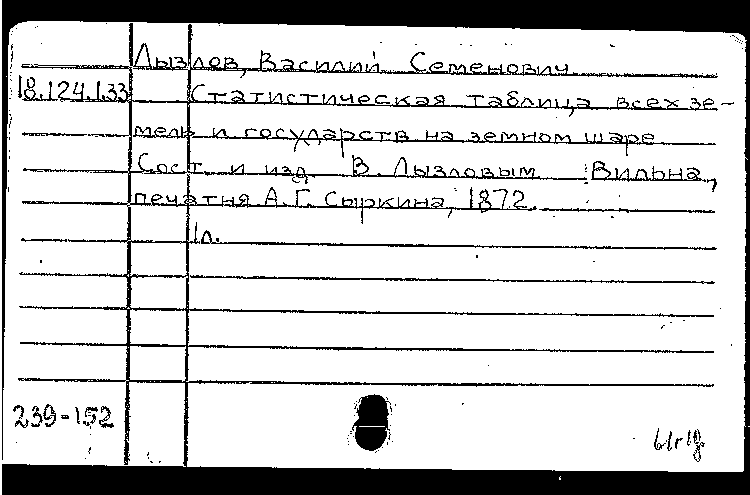 Лызлов, Василий Семенович
18.124.1.33 Статистическая таблица всех зе-
мель и государств на земном шаре
Сост. и изд. В. Лызловым Вильна,
печатня А. Г. Сыркина, 1872.
1л.
239-152